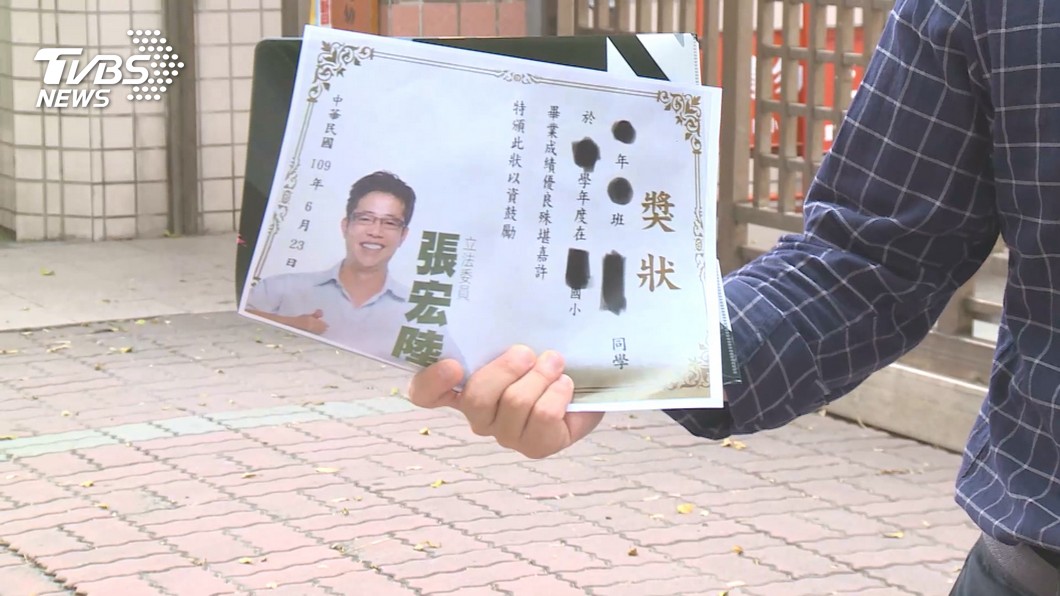 TVBS
NEWS
獎狀
年 班 同學
於 學年度在 國小
畢業成績優良殊堪嘉許
特頒此狀以資鼓勵
立法委員
張宏陸
中華民國 109 年 6 月 23 日